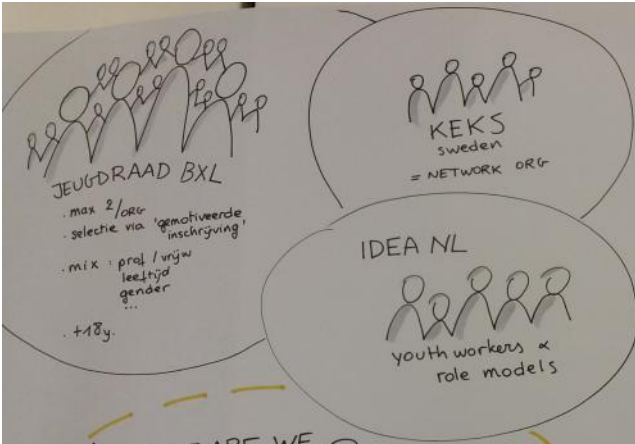 JEUGDRAAD BXL
. max 2/ORG
. selectie via 'gemotiveerde
inschrijving'
. mix : prof / vrijw
leeftijd
gender
...
. +18y.
KEKS
sweden
= NETWORK ORG
IDEA NL
youth workers &
role models
WE